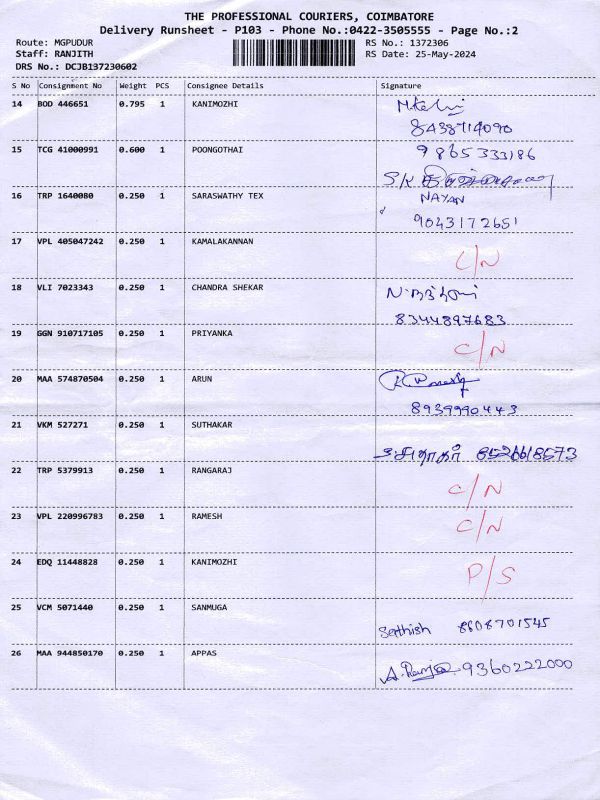 THE PROFESSIONAL COURIERS, COIMBATORE
Delivery Runsheet - P103 - Phone No.:0422-3505555 - Page No.:2
Route: MGPUDUR RS No.: 1372306
Staff: RANJITH RS Date: 25-May-2024
DRS No.: DCJB137230602
S No Consignment No Weight PCS Consignee Details Signature
14 BOD 446651 0.795 1 KANIMOZHI
8438714090
15 TCG 41000991 0.600 1 POONGOTHAI 9865333186
S.K
16 TRP 1640080 0.250 1 SARASWATHY TEX NAYAN
9043172651
17 VPL 405047242 0.250 1 KAMALAKANNAN
C/N
18 VLI 7023343 0.250 1 CHANDRA SHEKAR
8344897683
19 GGN 910717105 0.250 1 PRIYANKA
C/N
20 MAA 574870504 0.250 1 ARUN
8939990443
21 VKM 527271 0.250 1 SUTHAKAR
சுதாகர் 8526618573
22 TRP 5379913 0.250 1 RANGARAJ
C/N
23 VPL 220996783 0.250 1 RAMESH
C/N
24 EDQ 11448828 0.250 1 KANIMOZHI
P/S
25 VCM 5071440 0.250 1 SANMUGA
Sathish 8608701545
26 MAA 944850170 0.250 1 APPAS
9360222000